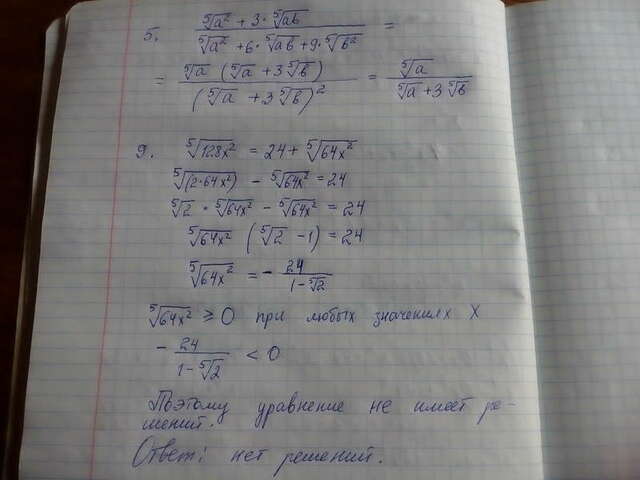 5. (⁵√a² + 3·⁵√ab) / (⁵√a² + 6·⁵√ab + 9·⁵√b²) =
= ⁵√a (⁵√a + 3⁵√b) / (⁵√a + 3⁵√b)² = ⁵√a / (⁵√a + 3⁵√b)
9. ⁵√128x² = 24 + ⁵√64x²
⁵√(2·64x²) - ⁵√64x² = 24
⁵√2 · ⁵√64x² - ⁵√64x² = 24
⁵√64x² (⁵√2 - 1) = 24
⁵√64x² = - 24 / (1-⁵√2)
⁵√64x² ≥ 0 при любых значениях x
- 24 / (1-⁵√2) < 0
Поэтому уравнение не имеет ре-
шений.
Ответ: нет решений.